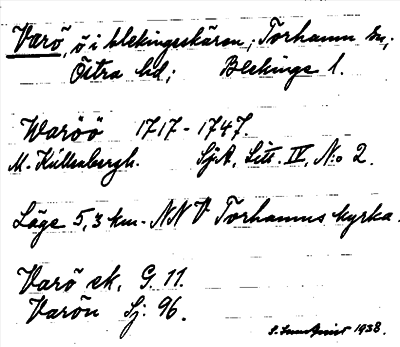 Varö, ö i blekingeskären, Torhamn sn,
Östra hd; Blekinge l.
Waröö 1717-1747.
M. Kilhenbergh. SjA, Litt. IV, No 2.
Läge 5,3 km. NNV Torhamns kyrka.
Varö ek. G. 11.
Varön Sj. 96.
1938.